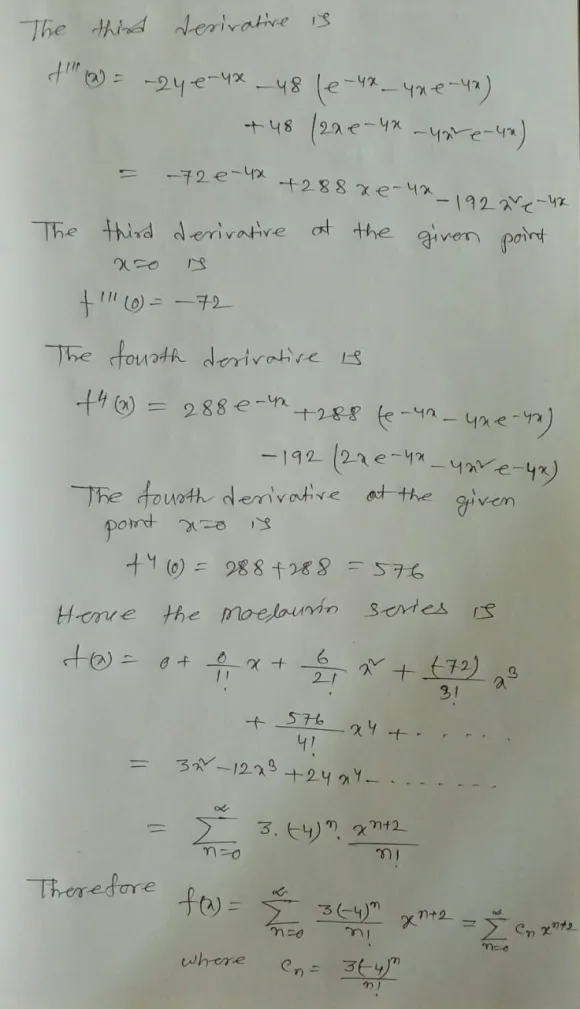 The third derivative is
f'''(x) = -24e^{-4x} - 48 (e^{-4x} - 4xe^{-4x})
+ 48 (2xe^{-4x} - 4x²e^{-4x})
= -72e^{-4x} + 288 xe^{-4x} - 192 x²e^{-4x}
The third derivative at the given point
x=0 is
f'''(0) = -72
The fourth derivative is
f⁴(x) = 288e^{-4x} + 288 (e^{-4x} - 4xe^{-4x})
-192 (2xe^{-4x} - 4x²e^{-4x})
The fourth derivative at the given
point x=0 is
f⁴(0) = 288+288 = 576
Hence the Maclaurin series is
f(x) = 0 + \frac{0}{1!} x + \frac{6}{2!} x² + \frac{(-72)}{3!} x³
+ \frac{576}{4!} x⁴ + . . . . . .
= 3x² - 12x³ + 24x⁴ - . . . . . . . .
= \sum_{n=0}^{∞} 3.(-4)^n . \frac{x^{n+2}}{n!}
Therefore f(x) = \sum_{n=0}^{∞} \frac{3(-4)^n}{n!} x^{n+2} = \sum_{n=0}^{∞} c_n x^{n+2}
where c_n = \frac{3(-4)^n}{n!}